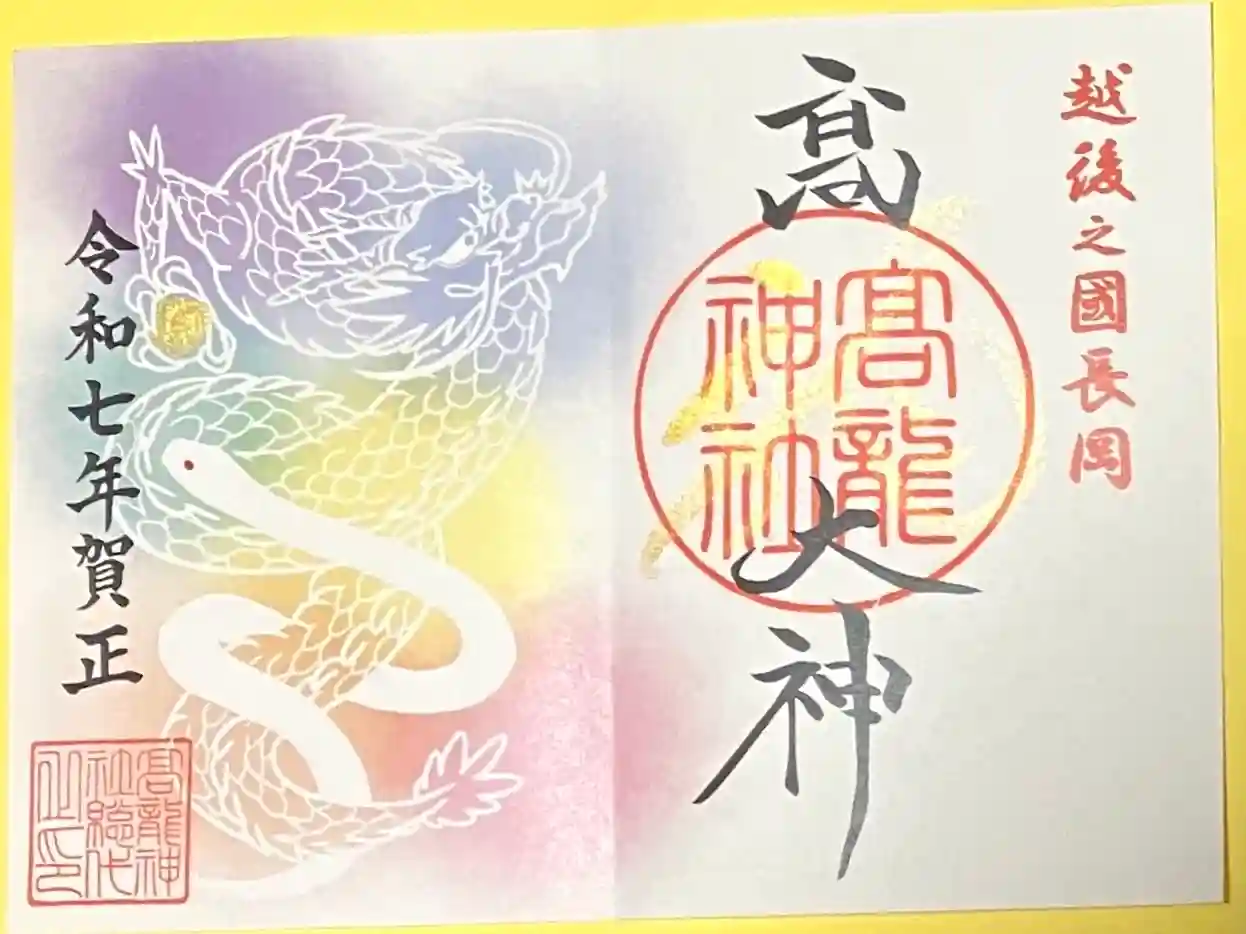 越後之國長岡
髙
大神
髙龍
神社
令和七年賀正
髙龍神
社総代
之印